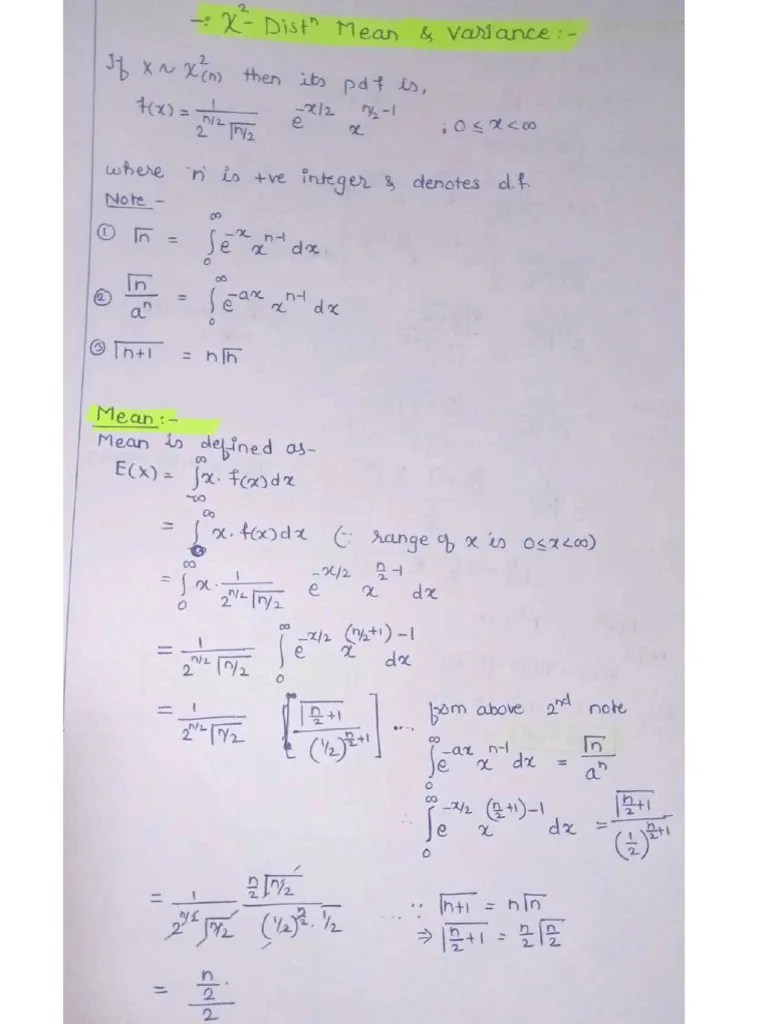 -: χ²- Distⁿ Mean & Variance:-
If x ~ χ²(n) then its pdf is,
f(x) = 1/(2^{n/2} Γn/2) e^{-x/2} x^{n/2-1} ; 0 ≤ x < ∞
where 'n' is +ve integer & denotes d.f.
Note -
① Γn = ∫₀^∞ e^{-x} x^{n-1} dx
② Γn/aⁿ = ∫₀^∞ e^{-ax} x^{n-1} dx
③ Γn+1 = nΓn
Mean :-
Mean is defined as-
E(x) = ∫_{-∞}^∞ x. f(x)dx
= ∫₀^∞ x. f(x)dx (∵ range of x is 0≤x<∞)
= ∫₀^∞ x. 1/(2^{n/2} Γn/2) e^{-x/2} x^{n/2-1} dx
= 1/(2^{n/2} Γn/2) ∫₀^∞ e^{-x/2} x^{(n/2+1)-1} dx
= 1/(2^{n/2} Γn/2) [Γ(n/2+1)/(1/2)^{n/2+1}] .... from above 2nd note
∫₀^∞ e^{-ax} x^{n-1} dx = Γn/aⁿ
∴ ∫₀^∞ e^{-x/2} x^{(n/2+1)-1} dx = Γ(n/2+1)/(1/2)^{n/2+1}
= 1/(2^{n/2} Γn/2) (n/2 Γn/2)/((1/2)^{n/2} . 1/2) ...∵ Γn+1 = nΓn
⇒ Γ(n/2+1) = n/2 Γn/2
= (n/2)/2